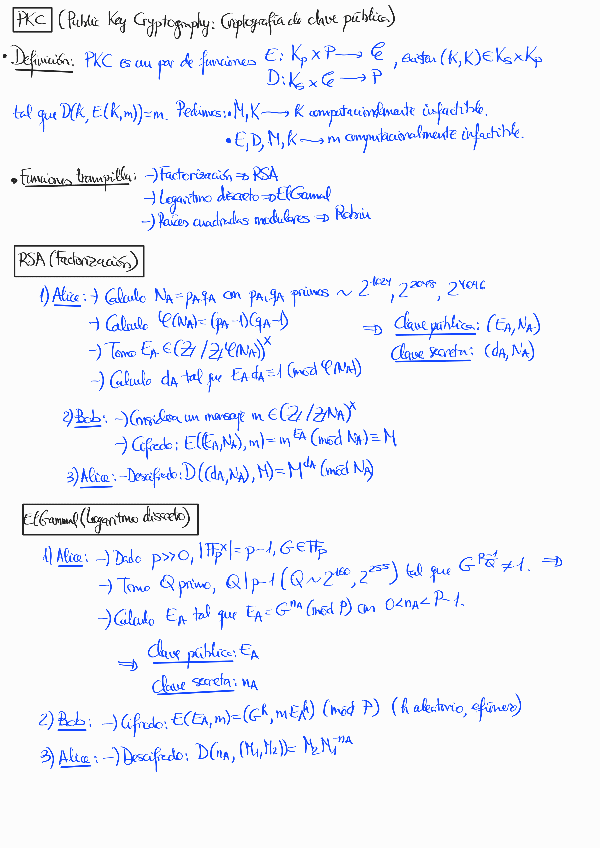 PKC (Public Key Cryptography: Criptografía de clave pública)
• Definición: PKC es un par de funciones E: Kp x P → C, existen (K, K) ∈ Ks x Kp
D: Ks x C → P
tal que D(K, E(K, m)) = m. Pedimos: • M, K → K computacionalmente infactible.
• E, D, M, K → m computacionalmente infactible.
• Funciones trampilla: → Factorización ⇒ RSA
→ Logaritmo discreto ⇒ ElGamal
→ Raíces cuadradas modulares ⇒ Rabin
RSA (Factorización)
1) Alice: → Calculo N_A = p_A q_A con p_A, q_A primos ~ 2^1024, 2^2048, 2^4096
→ Calculo φ(N_A) = (p_A - 1)(q_A - 1)
⇒ Clave pública: (E_A, N_A)
→ Tomo E_A ∈ (Z/Zφ(N_A))^x
Clave secreta: (d_A, N_A)
→ Calculo d_A tal que E_A d_A = 1 (mód φ(N_A))
2) Bob: → Considera un mensaje m ∈ (Z/Z N_A)^x
→ Cifrado: E((E_A, N_A), m) = m^E_A (mód N_A) ≡ M
3) Alice: → Descifrado: D((d_A, N_A), M) = M^d_A (mód N_A)
ElGammal (Logaritmo discreto)
1) Alice: → Dado p >> 0, |F_p^x| = p - 1, G ∈ F_p
→ Tomo Q primo, Q | p - 1 (Q ~ 2^160, 2^255) tal que G^(p-1/Q) ≠ 1. ⇒
→ Calculo E_A tal que E_A = G^n_A (mód p) con 0 < n_A < p - 1.
⇒ Clave pública: E_A
Clave secreta: n_A
2) Bob: → Cifrado: E(E_A, m) = (G^k, m E_A^k) (mód P) (k aleatorio, efímero)
3) Alice: → Descifrado: D(n_A, (M_1, M_2)) = M_2 M_1^-n_A